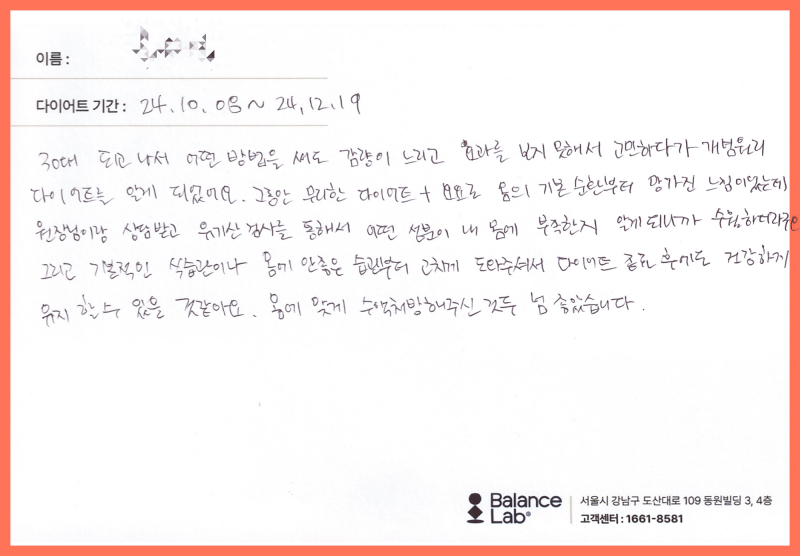 이름 :
다이어트 기간 : 24.10.08 ~ 24.12.19
30대 되고 나서 어떤 방법을 써도 감량이 느리고 효과를 보지 못해서 고민하다가 개범원리
다이어트는 알게 되었어요. 그동안 무리한 다이어트 + 요요로 몸의 기본 순환부터 망가진 느낌이었는데
원장님이랑 상담받고 유기산 검사를 통해서 어떤 성분이 내 몸에 부족한지 알게 되니까 수월하더라구요
그리고 기본적인 식습관이나 몸에 안좋은 습관부터 고치게 도와주셔서 다이어트 종료 후에도 건강하게
유지 할 수 있을 것같아요. 몸에 맞게 수액처방해주신 것두 넘 좋았습니다.
Balance Lab®
서울시 강남구 도산대로 109 동원빌딩 3, 4층
고객센터 : 1661-8581